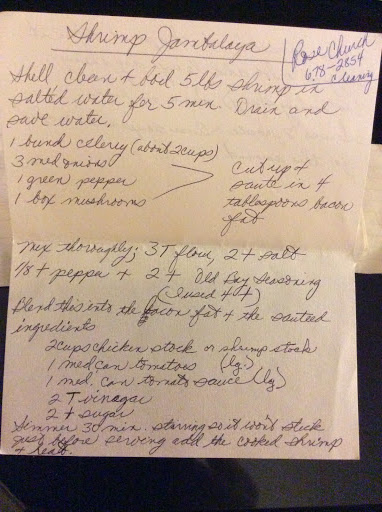 Shrimp Jambalaya
Rose Church
678-2854
cleaning
Shell clean + boil 5 lbs shrimp in
salted water for 5 min. Drain and
save water,
1 bund celery (about 2 cups)
3 med onions
1 green pepper
1 box mushrooms
cut up +
saute in 4
tablespoons bacon
fat
Mix thoroughly; 3 T flour, 2 t salt
1/8 t peppa + 2 t Old Bay Seasoning
(I used 4 t)
Blend this into the bacon fat + the sauteed
ingredients
2 cups chicken stock or shrimp stock
1 med can tomatoes (lg.)
1 med. can tomato sauce (lg)
2 T vinegar
2 t sugar
Simmer 30 min. stirring so it won't stick
just before serving add the cooked shrimp
+ heat.